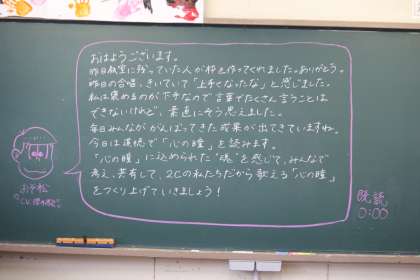 おはようございます。
昨日教室に残っていた人が枠を作ってくれました。ありがとう。
昨日の合唱、きいていて「上手くなったな」と感じました。
私は褒めるのが下手なので言葉でたくさん言うことは
できないけど、素直にそう思えました。
毎日みんながんばってきた成果が出てきていますね。
今日は道徳で「心の瞳」を読みます。
「心の瞳」に込められた"魂"を感じて、みんなで
考え、共有して、2Cの私たちだから歌える「心の瞳」
をつくり上げていきましょう!
おそ松
既読
0:00